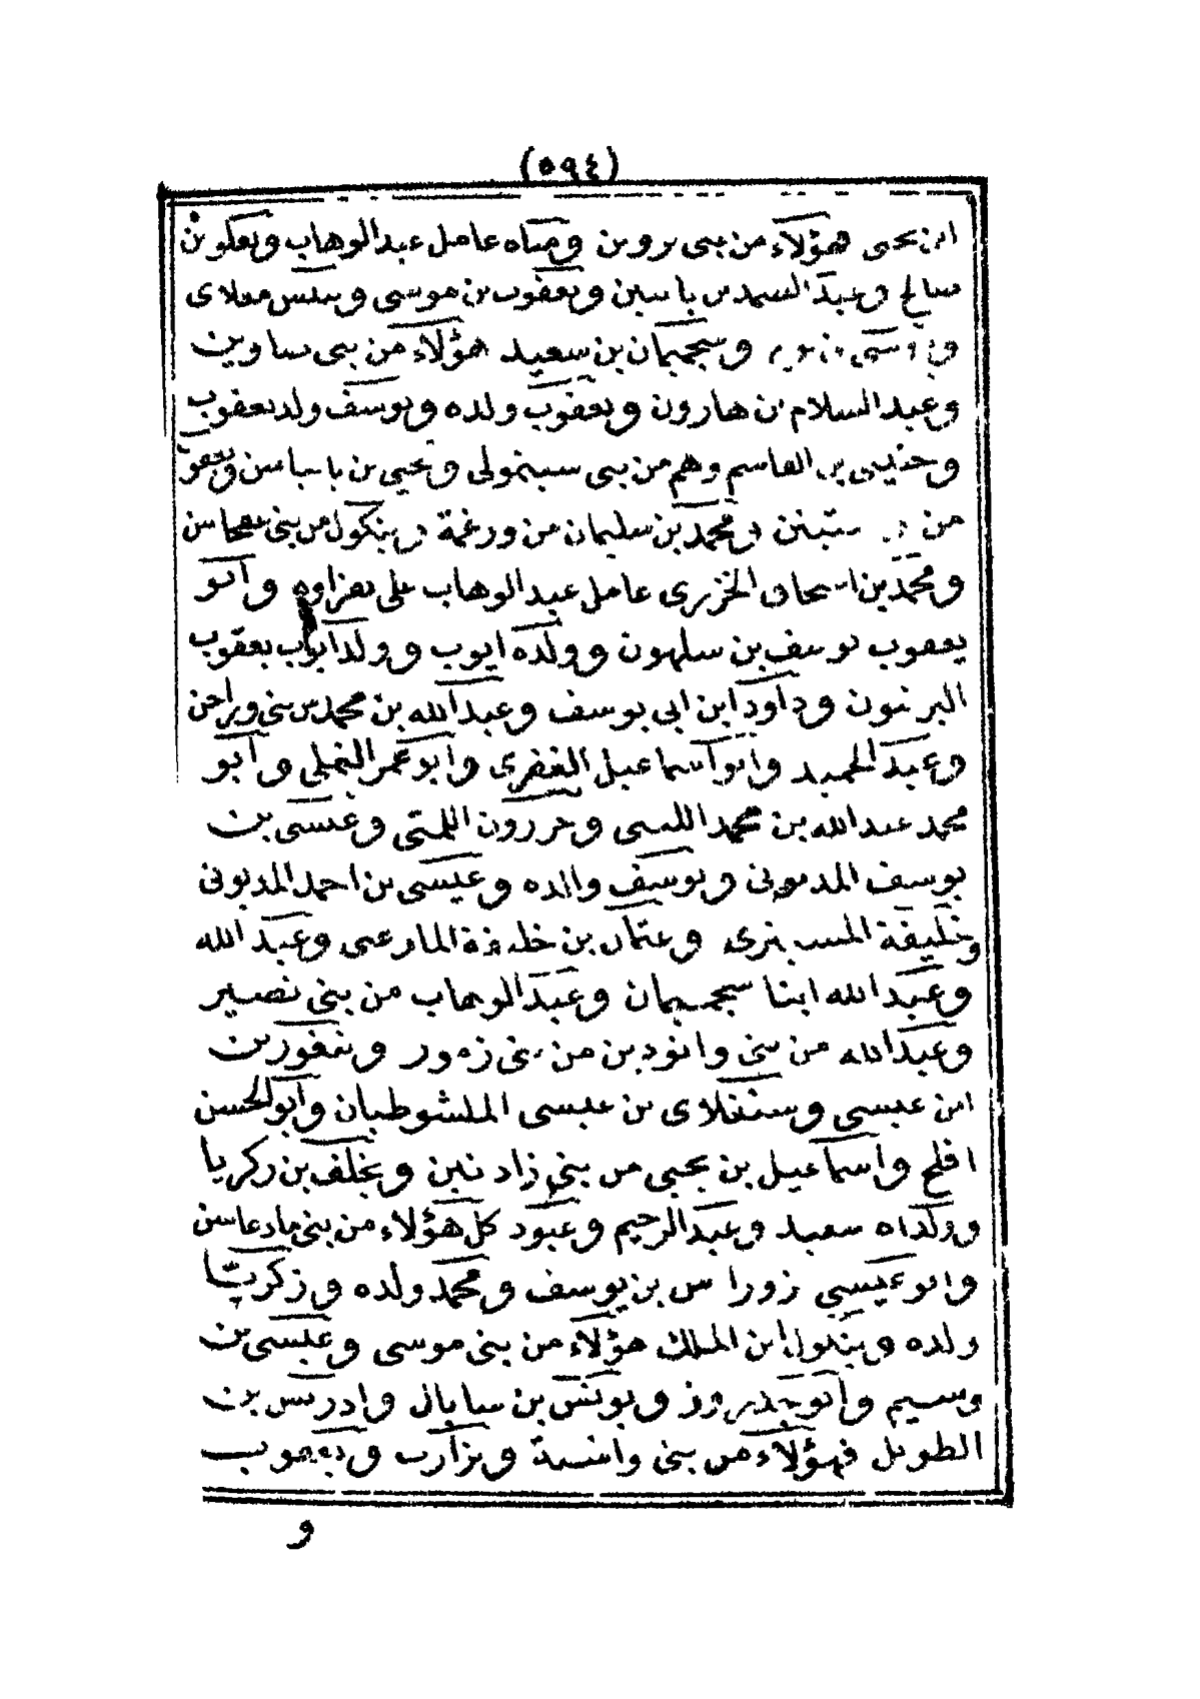 (٥٩٤)
ابن يحيى فهؤلاء من بني يروين ومناه عامل عبد الوهاب ويعكوبن
صالح وعبد السمد بن باسين ويعقوب بن موسى وسلس معلاى
وسجميمان بن سعيد هؤلاء من بني ساوين
وعبد السلام بن هارون ويعقوب ولده ويوسف ولد يعقوب
وحنيني بن القاسم وهم من بني سينمولى ويحيي بن باساسن ويعقوب
من ومحمد بن سليمان من ورغمة وبنكول من بني
ومحمد بن اسحاق الخزرى عامل عبد الوهاب على نفزاوه وابو
يعقوب يوسف بن سلهون وولده ايوب وولد ايوب يعقوب
البرنون وداود ابن ابي يوسف وعبد الله بن محمد من بني ويراحن
وعبد الحميد وابو اسماعيل النفرى وابو عمر النميلى وابو
محمد عبد الله بن محمد اللىى وحررون اللمتى وعيسى بن
يوسف المدىونى ويوسف والده وعيسى بن احمد المديونى
وخليفة وعثمان بن خليفة المارعنى وعبد الله
وعبد الله ابنا سجميمان وعبد الوهاب من بني نصير
وعبد الله من بني وانودين من بنى زمور وينفورين
ابن عيسى وسنغلاى بن عيسى الملشوطيان وابو الحسن
افلح واسماعيل بن يحيى من بني زادنين ويخلف بن زكريا
وولداه سعيد وعبد الرحيم وعبود كل هؤلاء من بني مادغاسن
وابو عيسي زوراس بن يوسف ومحمد ولده وزكريا
ولده وينكول ابن الملك هؤلاء من بني موسى وعيسى بن
وسيم وابو ويونس بن سابال وادريس بن
الطويل فهؤلاء من بني وانسة ويزارب ويعقوب
و